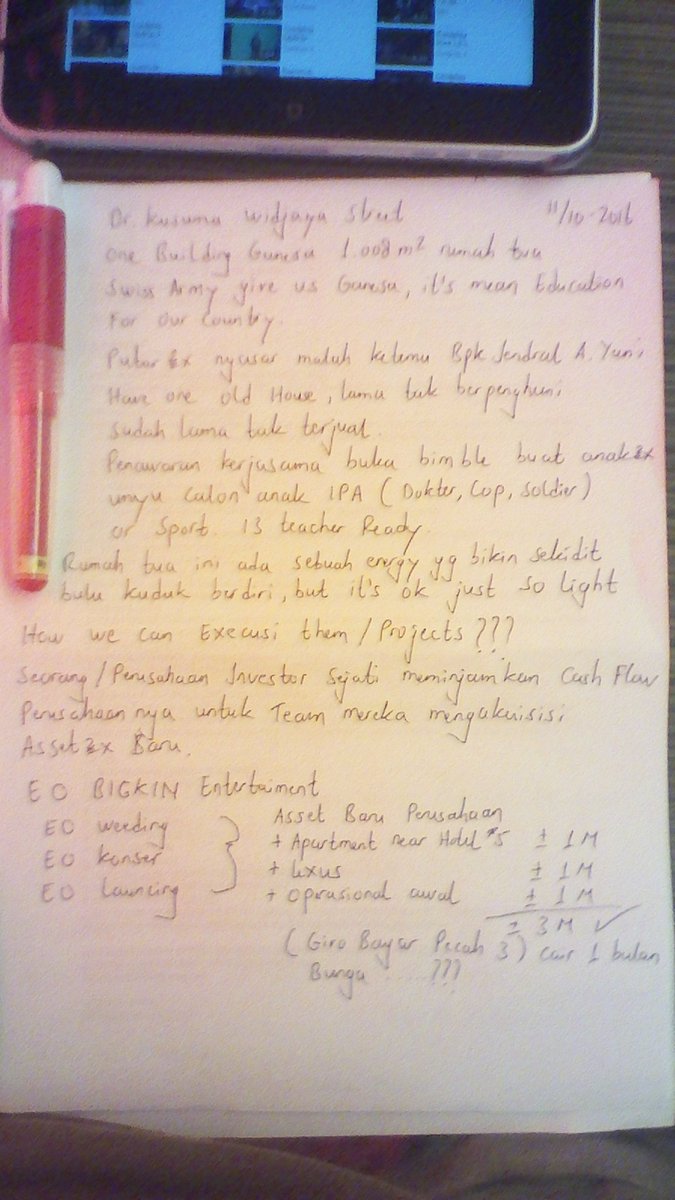 Dr. Kusuma Widjaya 11/10-2016
One Building Ganesa 1.008 m² rumah tua
Swiss Army give us Ganesa, it's mean Education
For our Country.
Putar 2x nyasar malah ketemu Bpk Jendral A. Yani
Have one old House, lama tak berpenghuni
sudah lama tak terjual.
Penawaran kerjasama buka bimble buat anak2x
unyu calon anak IPA (Dokter, Cop, Soldier)
or Sport. 13 teacher Ready.
Rumah tua ini ada sebuah energy yg bikin sekidit
bulu kuduk berdiri, but it's ok just so light
How we can Execusi them / Projects ???
Seorang / Perusahaan Investor Sejati meminjamkan Cash Flow
Perusahaannya untuk Team mereka mengakuisisi
Asset2x Baru.
EO BIGKIN Entertaiment
EO weeding
EO konser
EO Launcing
Asset Baru Perusahaan
+ Apartment near Hotel *5 ± 1 M
+ Lexus ± 1 M
+ Oprasional awal ± 1 M
± 3 M ✓
(Giro Bayar Pecah 3) cair 1 bulan
Bunga ... ???